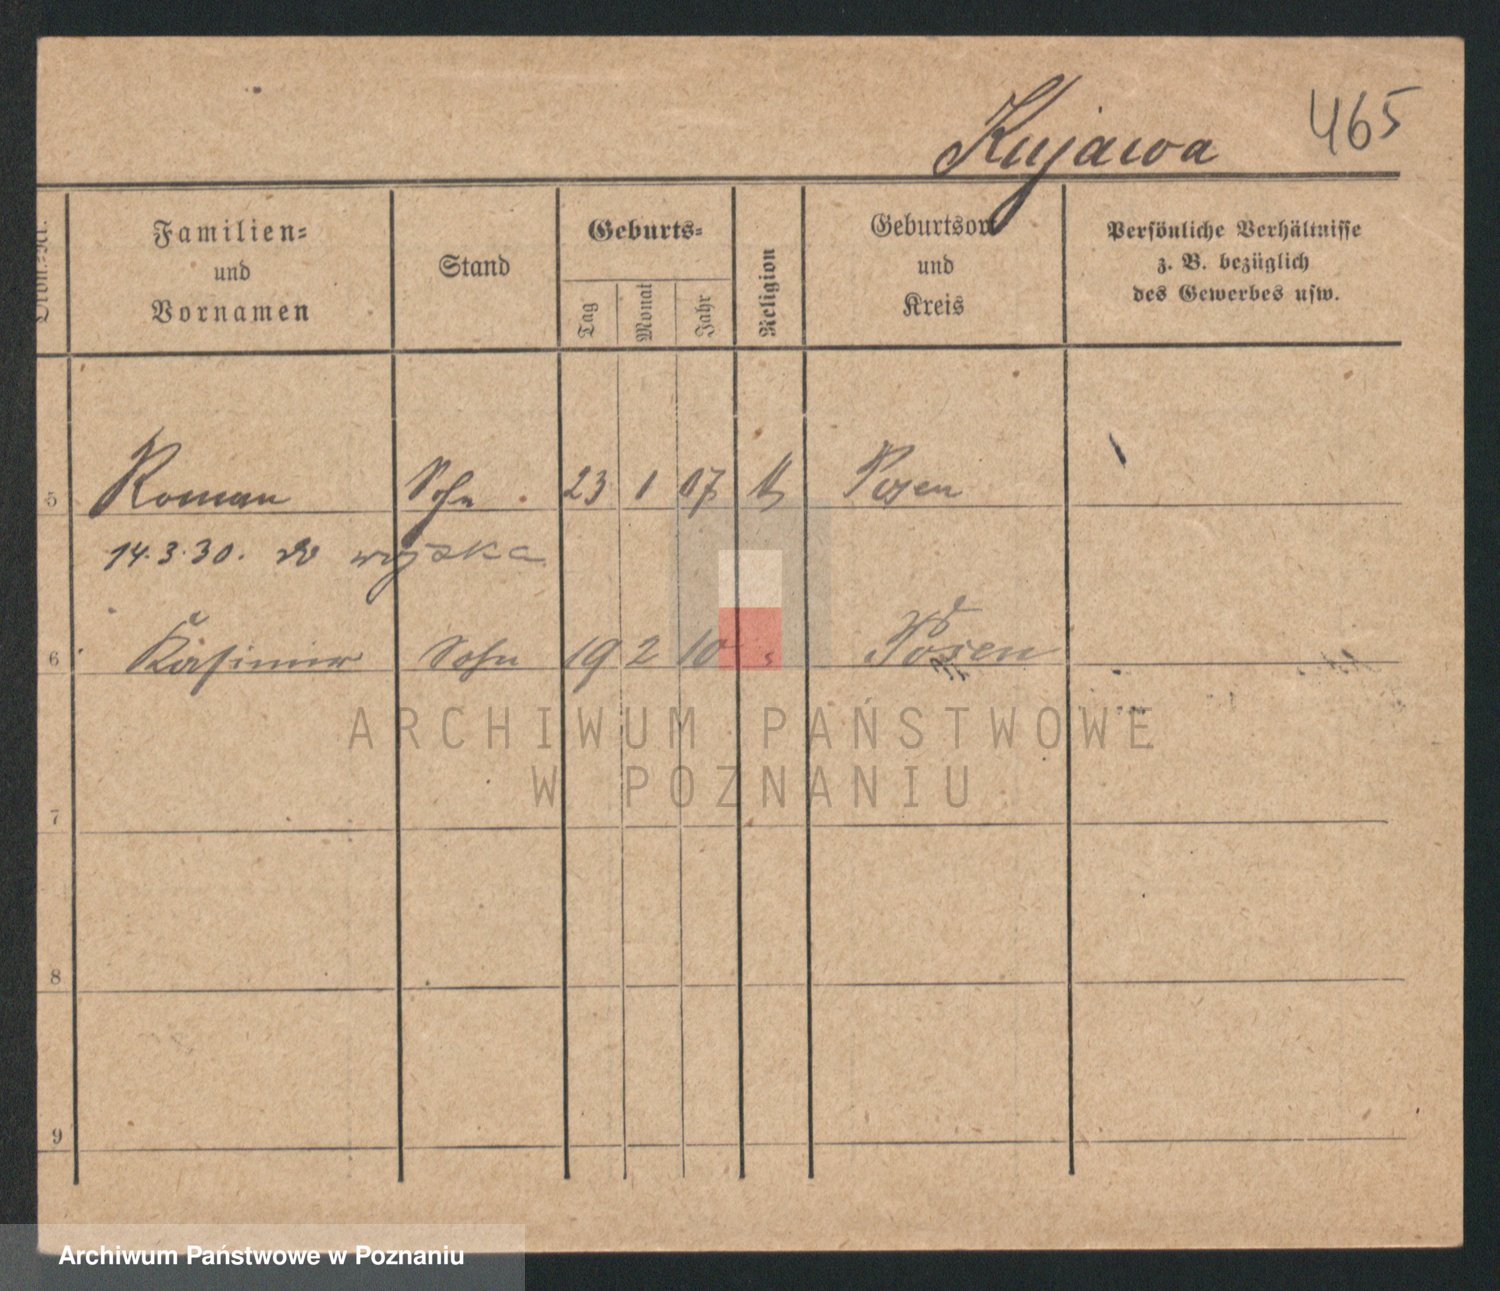 465
Kujawa
Ordn.-Nr.
Familien-
und
Vornamen
Stand
Geburts-
Tag
Monat
Jahr
Religion
Geburtsort
und
Kreis
Persönliche Verhältnisse
z. B. bezüglich
des Gewerbes usw.
5 Roman Sohn 23 1 07 Posen
14.3.30. do wojska
6 Kasimir Sohn 19 2 10 " Posen
7
8
9
ARCHIWUM PAŃSTWOWE
W POZNANIU
Archiwum Państwowe w Poznaniu